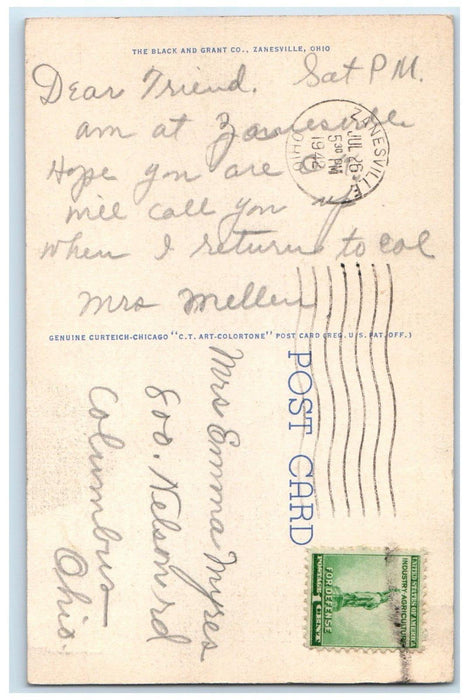 THE BLACK AND GRANT CO., ZANESVILLE, OHIO
Dear Friend. Sat P.M.
am at Zanesville
Hope you are
will call you up
when I return to col
Mrs Mellen
ZANESVILLE
JUL 26
5 30 PM
1942
OHIO
GENUINE CURTEICH-CHICAGO "C.T. ART-COLORTONE" POST CARD (REG. U.S. PAT. OFF.)
POST CARD
Mrs Emma Myres
800. Nelson rd
Columbus
Ohio.
UNITED STATES OF AMERICA
INDUSTRY AGRICULTURE
FOR DEFENSE
POSTAGE 1 CENT